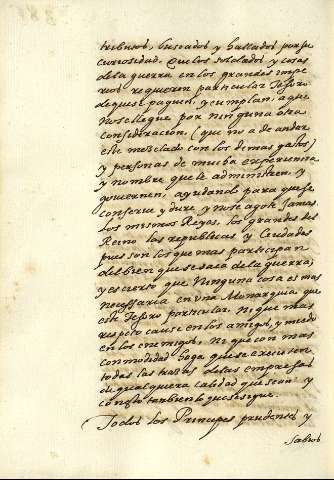 tribusos, buscados y hallados por su
curiosidad. Que los soldados y cosas
de la guerra en los grandes impe
rios requieren particular Tesoro
de que se paguen, y cumplan, a que
no se llegue por ninguna otra
consideracion, (que no a de andar
este mezclado con los demas gastos)
y personas de mucha experiencia
y nombre que le administren, y
goviernen, ayudando para que se
conserve y dure, y no se agote Jamas,
los mismos Reyes, los grandes del
Reino las republicas y Ciudades
pues son los que mas participan
del bien que se saca de la guerra;
y es cierto que ninguna cosa es mas
necessaria en una Monarquia que
este Tesoro particular, ni que mas
respeto cause en los amigos, y miedo
en los enemigos, ni que con mas
commodidad haga que se executen
todas las trazas de las empresas
de qualquiera calidad que sean y
con esto tambien que se sigue.
Todos los Principes prudentes y
sabios